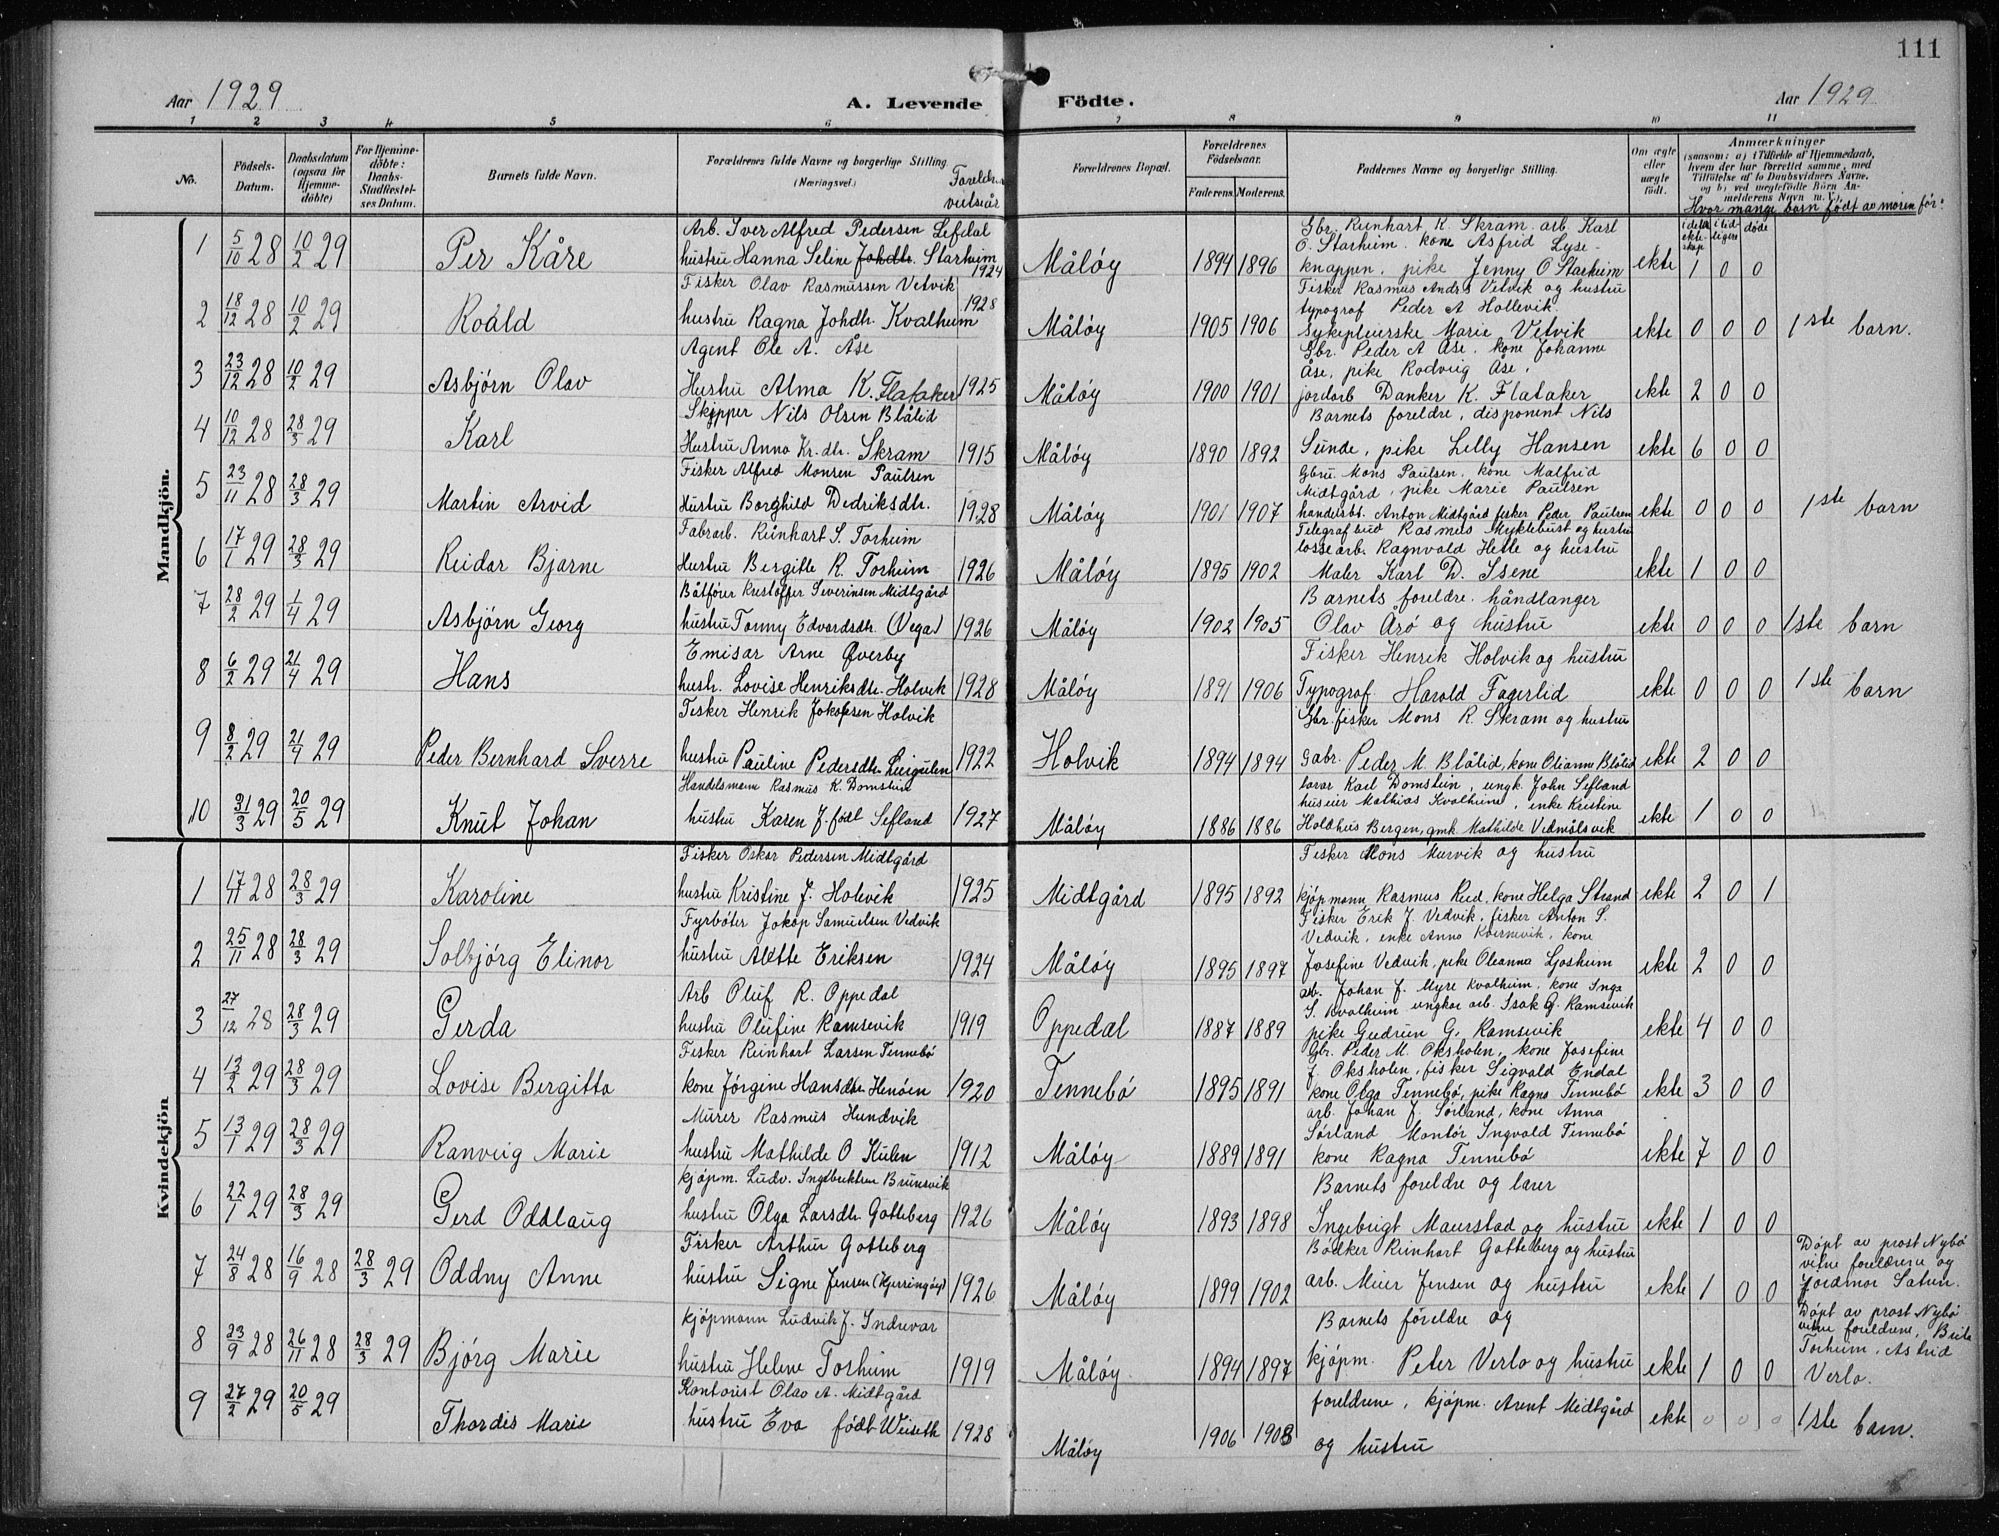 111
Aar 1929
A. Levende Födte.
Aar 1929
1 2 3 4 5 6 7 8 9 10 11
No.
Födsels-Datum.
Daabsdatum (ogsaa for Hjemme-döbte)
For Hjemme-döbte: Daabs-Stadfæstel-ses Datum.
Barnets fulde Navn.
Forældrenes fulde Navne og borgerlige Stilling. (Næringsvei.)
Foreldr. vielsesår
Forældrenes Bopæl.
Forældrenes Födselsaar.
Faderens. Moderens.
Faddernes Navne og borgerlige Stilling.
Om ægte eller uægte födt.
Anmærkninger
(saasom: a) i Tilfælde af Hjemmedaab,
hvem der har forrettet samme, med
Tilföielse af to Daabsvidners Navne,
og b) ved uægtefödte Börn An-
melderens Navn m. V.).
Hvor mange barn födt av moren för:
i dette ekte-skap
i tid-ligere
döde
Mandkjön.
1 5/10 28 10/2 29 Per Kåre
Arb. Iver Alfred Pedersen Lefdal
hustru Hanna Seline Johdtr. Starheim 1924
Måløy 1894 1896
Gbr. Reinhart K. Skram. arb. Karl
O. Starheim. kone Asfrid Lyse-
knappen, pike Jenny O Starheim
ekte 1 0 0
2 18/12 28 10/2 29 Roald
Fisker Olav Rasmussen Vetvik
hustru Ragna Johdtr. Kvalheim 1928
Måløy 1905 1906
Fisker Rasmus Andr. Vetvik og hustru
typograf Peder A Hollevik,
sykepleierske Marie Vetvik
ekte 0 0 0 1ste barn.
3 23/12 28 10/2 29 Asbjørn Olav
Agent Ole A. Åse
Hustru Alma K. Flataker 1925
Måløy 1900 1901
Gbr. Peder A Åse. kone Johanne
Åse, pike Rodveig Åse,
jordarb Danker K. Flataker
ekte 2 0 0
4 10/12 28 28/3 29 Karl
Skipper Nils Olsen Blålid
Hustru Anna Kr. dtr. Skram 1915
Måløy 1890 1892
Barnets foreldre, disponent Nils
Sunde, pike Lelly Hansen
ekte 6 0 0
5 23/11 28 28/3 29 Martin Arvid
Fisker Alfred Monsen Paulsen
Hustru Borghild Dedriksdtr. 1928
Måløy 1901 1907
Gbru. Mons Paulsen, kone Malfrid
Midtgård, pike Marie Paulsen
handelsbt. Anton Midtgård fisker Peder Paulsen
ekte 0 0 0 1ste barn
6 17/1 29 28/3 29 Reidar Bjarne
Fabrarb. Reinhart S. Torheim
Hustru Bergitte R. Torheim 1926
Måløy 1895 1902
Telegrafbud Rasmus Myklebust og hustru
lossearb. Ragnvald Hette og hustru
Maler Karl D. Isene
ekte 1 0 0
7 28/2 29 1/4 29 Asbjørn Georg
Båtfører Kristoffer Severinsen Midtgård
hustru Tonny Edvardsdtr. (Vega) 1926
Måløy 1902 1905
Barnets foreldre. håndlanger
Olav Årö og hustru
ekte 0 0 0 1ste barn
8 6/2 29 21/4 29 Hans
Emisær Arne Øverby
hustr. Lovise Henriksdtr. Holvik 1928
Måløy 1891 1906
Fisker Henrik Holvik og hustru
Typograf Harald Fagerlid
ekte 0 0 0 1ste barn
9 8/2 29 21/4 29 Peder Bernhard Sverre
Fisker Henrik Jakobsen Holvik
hustru Pauline Pedersdtr. Leigulen 1922
Holvik 1894 1894
Gbr. fisker Mons R. Skram og hustru
Gabr. Peder M. Blålid, kone Olianne Blålid
ekte 2 0 0
10 31/3 29 20/5 29 Knut Johan
Handelsmann Rasmus K. Domstein
hustru Karen J. født Sefland 1927
Måløy 1886 1886
lærer Karl Domstein, ungk. John Sefland
huseier Mathias Kvalheim, enke Kristine
Holdhus Bergen, gmk Mathilde Vedmålsvik
ekte 1 0 0
Kvindekjön
1 17/11 28 28/3 29 Karoline
Fisker Oskar Pedersen Midtgård
hustru Kristine J. Holevik 1925
Midtgård 1895 1892
Fisker Mons Murvik og hustru
kjøpmann Rasmus Reed, kone Helga Strand
ekte 2 0 1
2 25/11 28 28/3 29 Solbjørg Elinor
Fyrbøter Jakop Samuelsen Vedvik
hustru Alette Eriksen 1924
Måløy 1895 1897
Fisker Erik J. Vedvik, fisker Anton S.
Vedvik, enke Anna Kvernevik, kone
Josefine Vedvik, pike Oleanna Ljosheim
ekte 2 0 0
3 27/12 28 28/3 29 Gerda
Arb Oluf R. Oppedal
hustru Olufine Ramsevik 1919
Oppedal 1887 1889
ab. Johan J. Myre Kvalheim, kone Inga
S. Kvalheim ungkar arb. Isak G. Ramsevik
pike Gudrun G. Ramsevik
ekte 4 0 0
4 13/2 29 28/3 29 Lovise Bergitta
Fisker Reinhart Larsen Tennebø
kone Jørgine Hansdtr Henøen 1920
Tennebø 1895 1891
Gbr. Peder M. Oksholen, kone Josefine
J. Oksholen, fisker Sigvald Endal
kone Olga Tennebø, pike Ragna Tennebø
ekte 3 0 0
5 13/1 29 28/3 29 Ranveig Marie
Murer Rasmus Hundvik
hustru Mathilde O Hulen 1912
Måløy 1889 1891
arb. Johan J. Sørland, kone Anna
Sørland Montør Ingvald Tennebø
kone Ragna Tennebø
ekte 7 0 0
6 22/1 29 28/3 29 Gerd Oddlaug
kjøpm. Ludv. Ingebrektsen Brunsvik
hustru Olga Larsdtr. Gotteberg 1926
Måløy 1893 1898
Barnets foreldre og lærer
Ingebrigt Maurstad og hustru
ekte 1 0 0
7 24/8 28 16/9 28 28/3 29 Oddny Anne
Fisker Arthur Gotteberg
hustru Signe Jensen (Kjerringøy) 1926
Måløy 1899 1902
Bødker Reinhart Gotteberg og hustru
arb. Meier Jensen og hustru
ekte 1 0 0
Döpt av prost Nybø
vitne foreldrene og
Jordmor Satun.
8 23/9 28 26/11 28 28/3 29 Bjørg Marie
kjøpmann Ludvik J. Indrevær
hustru Helene Torheim 1919
Måløy 1894 1897
Barnets foreldre og
kjøpm. Peter Verlo og hustru
ekte 1 0 0
Döpt av prost Nybø
vitne foreldrene, Brita
Torheim, Astrid
Verlo.
9 27/2 29 20/5 29 Thordis Marie
Kontorist Olav A. Midtgård
hustru Eva født Weiseth 1928
Måløy 1906 1908
foreldrene, kjøpm. Arent Midtgård
og hustru
ekte 0 0 0 1ste barn.